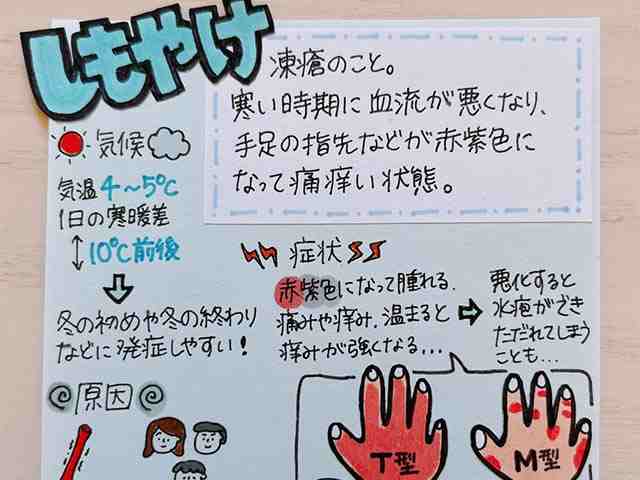 しもやけ
凍瘡のこと。
寒い時期に血流が悪くなり、
手足の指先などが赤紫色に
なって痛痒い状態。
気候
気温4〜5℃
1日の寒暖差
10℃前後
冬の初めや冬の終わり
などに発症しやすい!
症状
赤紫色になって腫れる。
痛みや痒み。温まると
痒みが強くなる...
悪化すると
水疱ができ
ただれてしまう
ことも...
原因
T型
M型